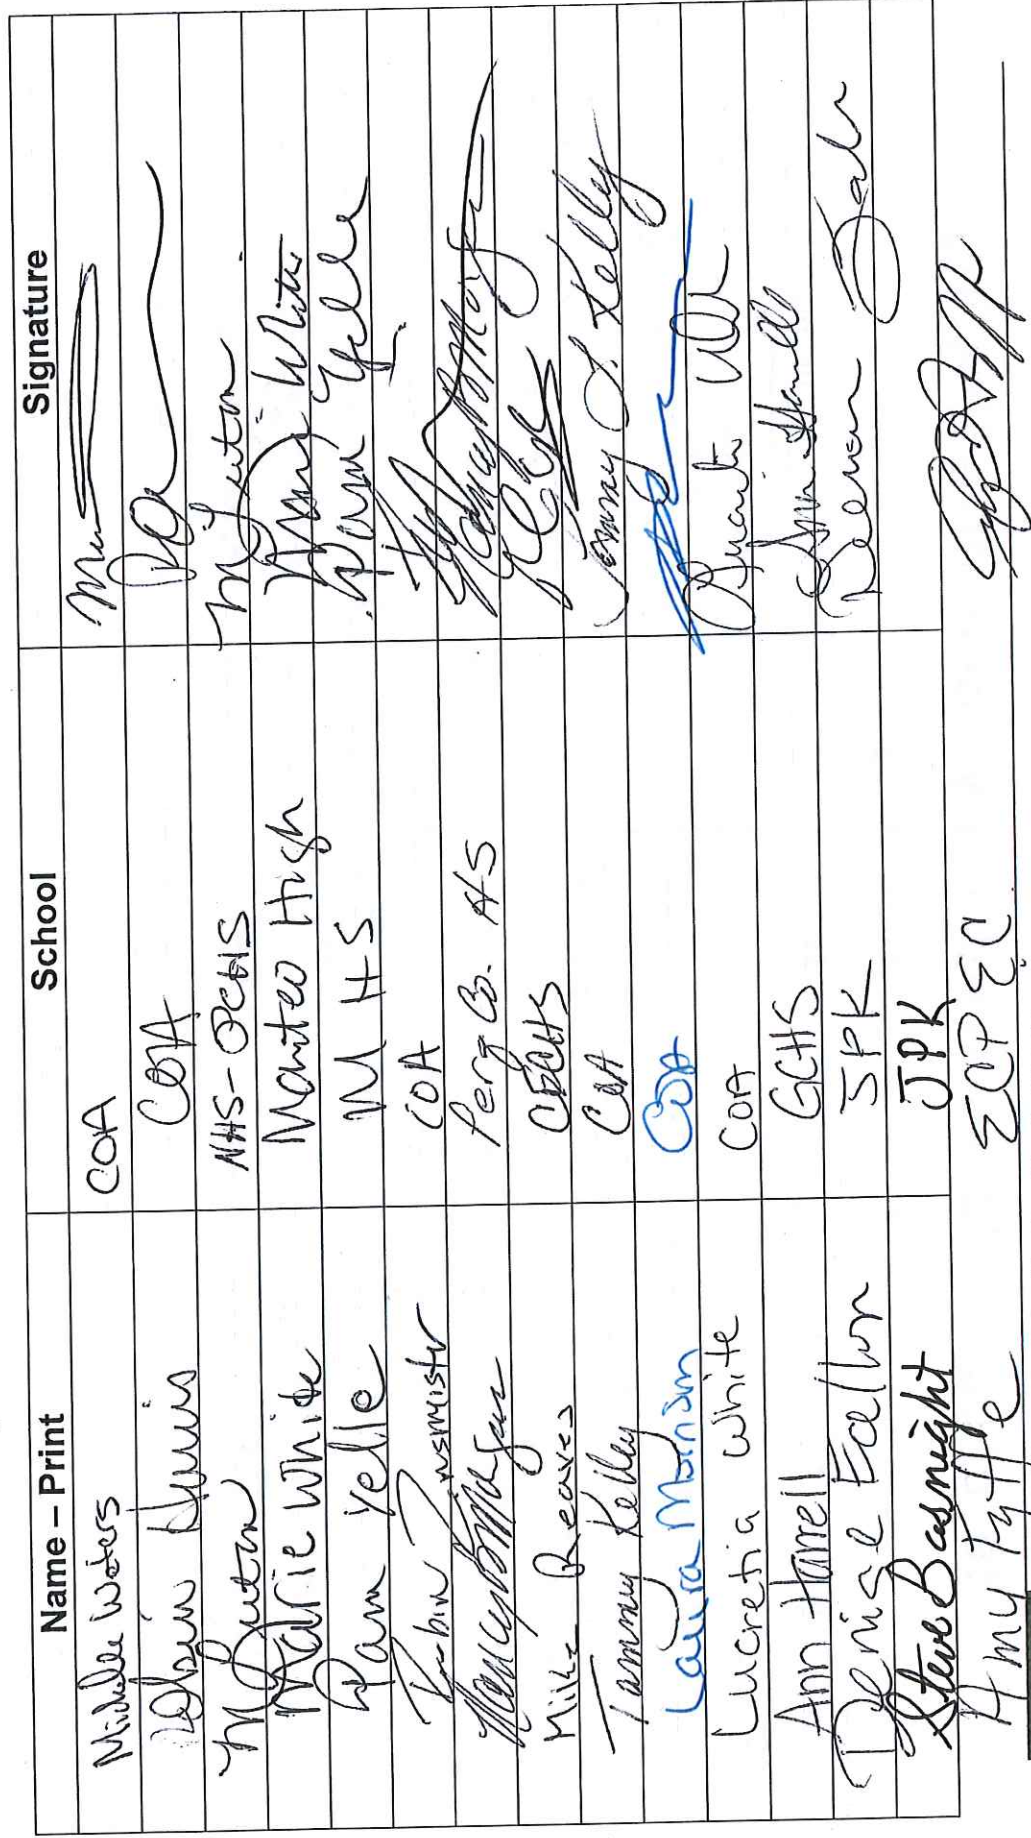 Name – Print School Signature
Michelle Waters COA
Robin Harris COA
M Luton NHS-OCHS M Luton
Marie White Manteo High Marie White
Pam Yelle MHS Pam Yelle
Robin Zinsmeister COA
Nancy B Morgan Perq Co. HS Nancy B Morgan
Mike Reaves GCHS
Tammy Kelly COA Tammy L Kelly
Laura Morrison COA
Lucretia White COA
Ann Harrell GCHS Ann Harrell
Denise Fallon JPK Denise
Steve Basnight JPK
Amy Fyffe ECP EC